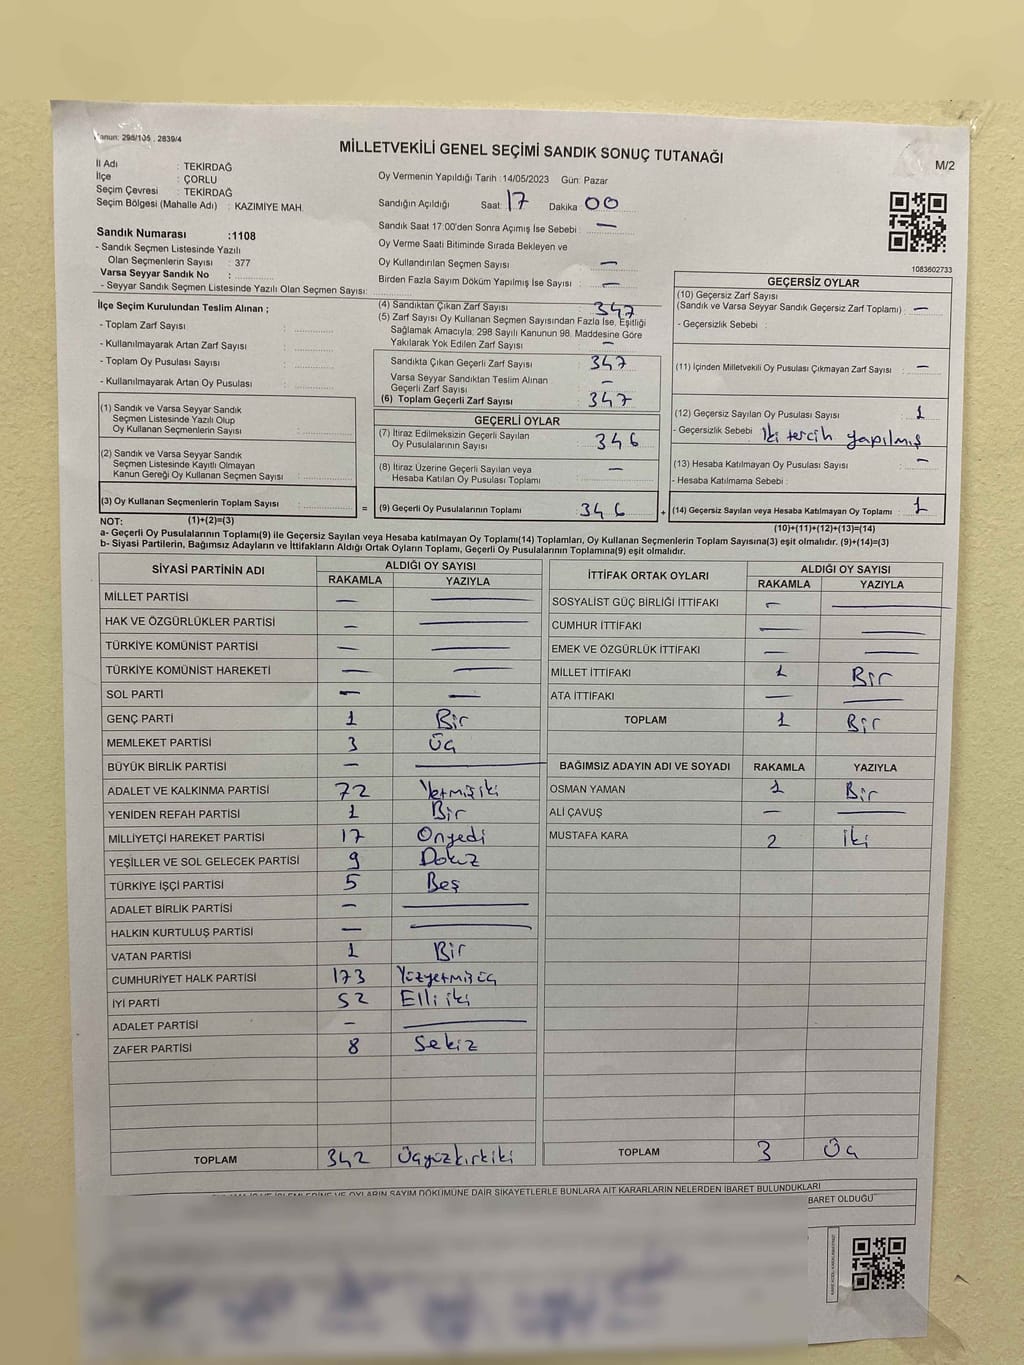 Kanun: 298/105 , 2839/4
MİLLETVEKİLİ GENEL SEÇİMİ SANDIK SONUÇ TUTANAĞI
M/2
İl Adı : TEKİRDAĞ
İlçe : ÇORLU
Seçim Çevresi : TEKİRDAĞ
Seçim Bölgesi (Mahalle Adı) : KAZIMİYE MAH.
Sandık Numarası :1108
- Sandık Seçmen Listesinde Yazılı
Olan Seçmenlerin Sayısı : 377
Varsa Seyyar Sandık No :
- Seyyar Sandık Seçmen Listesinde Yazılı Olan Seçmen Sayısı:
Oy Vermenin Yapıldığı Tarih :14/05/2023 Gün: Pazar
Sandığın Açıldığı Saat: 17 Dakika 00
Sandık Saat 17:00'den Sonra Açımış İse Sebebi : —
Oy Verme Saati Bitiminde Sırada Bekleyen ve
Oy Kullandırılan Seçmen Sayısı —
Birden Fazla Sayım Döküm Yapılmış İse Sayısı : —
1083602733
İlçe Seçim Kurulundan Teslim Alınan ;
- Toplam Zarf Sayısı :
- Kullanılmayarak Artan Zarf Sayısı :
- Toplam Oy Pusulası Sayısı :
- Kullanılmayarak Artan Oy Pusulası :
(1) Sandık ve Varsa Seyyar Sandık
Seçmen Listesinde Yazılı Olup
Oy Kullanan Seçmenlerin Sayısı :
(2) Sandık ve Varsa Seyyar Sandık
Seçmen Listesinde Kayıtlı Olmayan
Kanun Gereği Oy Kullanan Seçmen Sayısı :
(3) Oy Kullanan Seçmenlerin Toplam Sayısı :
(1)+(2)=(3)
(4) Sandıktan Çıkan Zarf Sayısı : 347
(5) Zarf Sayısı Oy Kullanan Seçmen Sayısından Fazla İse, Eşitliği
Sağlamak Amacıyla; 298 Sayılı Kanunun 98. Maddesine Göre
Yakılarak Yok Edilen Zarf Sayısı : —
Sandıkta Çıkan Geçerli Zarf Sayısı : 347
Varsa Seyyar Sandıktan Teslim Alınan
Geçerli Zarf Sayısı : —
(6) Toplam Geçerli Zarf Sayısı : 347
GEÇERLİ OYLAR
(7) İtiraz Edilmeksizin Geçerli Sayılan
Oy Pusulalarının Sayısı : 346
(8) İtiraz Üzerine Geçerli Sayılan veya
Hesaba Katılan Oy Pusulası Toplamı : —
= (9) Geçerli Oy Pusulalarının Toplamı : 346 +
GEÇERSİZ OYLAR
(10) Geçersiz Zarf Sayısı
(Sandık ve Varsa Seyyar Sandık Geçersiz Zarf Toplamı) : —
- Geçersizlik Sebebi :
(11) İçinden Milletvekili Oy Pusulası Çıkmayan Zarf Sayısı : —
(12) Geçersiz Sayılan Oy Pusulası Sayısı : 1
- Geçersizlik Sebebi : İki tercih yapılmış
(13) Hesaba Katılmayan Oy Pusulası Sayısı : —
- Hesaba Katılmama Sebebi :
(14) Geçersiz Sayılan veya Hesaba Katılmayan Oy Toplamı : 1
(10)+(11)+(12)+(13)=(14)
NOT:
a- Geçerli Oy Pusulalarının Toplamı(9) ile Geçersiz Sayılan veya Hesaba katılmayan Oy Toplamı(14) Toplamları, Oy Kullanan Seçmenlerin Toplam Sayısına(3) eşit olmalıdır. (9)+(14)=(3)
b- Siyasi Partilerin, Bağımsız Adayların ve İttifakların Aldığı Ortak Oyların Toplamı, Geçerli Oy Pusulalarının Toplamına(9) eşit olmalıdır.
SİYASİ PARTİNİN ADI ALDIĞI OY SAYISI
RAKAMLA YAZIYLA
MİLLET PARTİSİ — —
HAK VE ÖZGÜRLÜKLER PARTİSİ — —
TÜRKİYE KOMÜNİST PARTİSİ — —
TÜRKİYE KOMÜNİST HAREKETİ — —
SOL PARTİ — —
GENÇ PARTİ 1 Bir
MEMLEKET PARTİSİ 3 Üç
BÜYÜK BİRLİK PARTİSİ — —
ADALET VE KALKINMA PARTİSİ 72 Yetmişiki
YENİDEN REFAH PARTİSİ 1 Bir
MİLLİYETÇİ HAREKET PARTİSİ 17 Onyedi
YEŞİLLER VE SOL GELECEK PARTİSİ 9 Dokuz
TÜRKİYE İŞÇİ PARTİSİ 5 Beş
ADALET BİRLİK PARTİSİ — —
HALKIN KURTULUŞ PARTİSİ — —
VATAN PARTİSİ 1 Bir
CUMHURİYET HALK PARTİSİ 173 Yüzyetmişüç
İYİ PARTİ 52 Elli iki
ADALET PARTİSİ — —
ZAFER PARTİSİ 8 Sekiz
TOPLAM 342 Üçyüzkırkiki
İTTİFAK ORTAK OYLARI ALDIĞI OY SAYISI
RAKAMLA YAZIYLA
SOSYALİST GÜÇ BİRLİĞİ İTTİFAKI — —
CUMHUR İTTİFAKI — —
EMEK VE ÖZGÜRLÜK İTTİFAKI — —
MİLLET İTTİFAKI 1 Bir
ATA İTTİFAKI — —
TOPLAM 1 Bir
BAĞIMSIZ ADAYIN ADI VE SOYADI RAKAMLA YAZIYLA
OSMAN YAMAN 1 Bir
ALİ ÇAVUŞ — —
MUSTAFA KARA 2 İki
TOPLAM 3 Üç
OYLARIN SAYIM DÖKÜMÜNE DAİR ŞİKAYETLERLE BUNLARA AİT KARARLARIN NELERDEN İBARET BULUNDUKLARI
BARET OLDUĞU